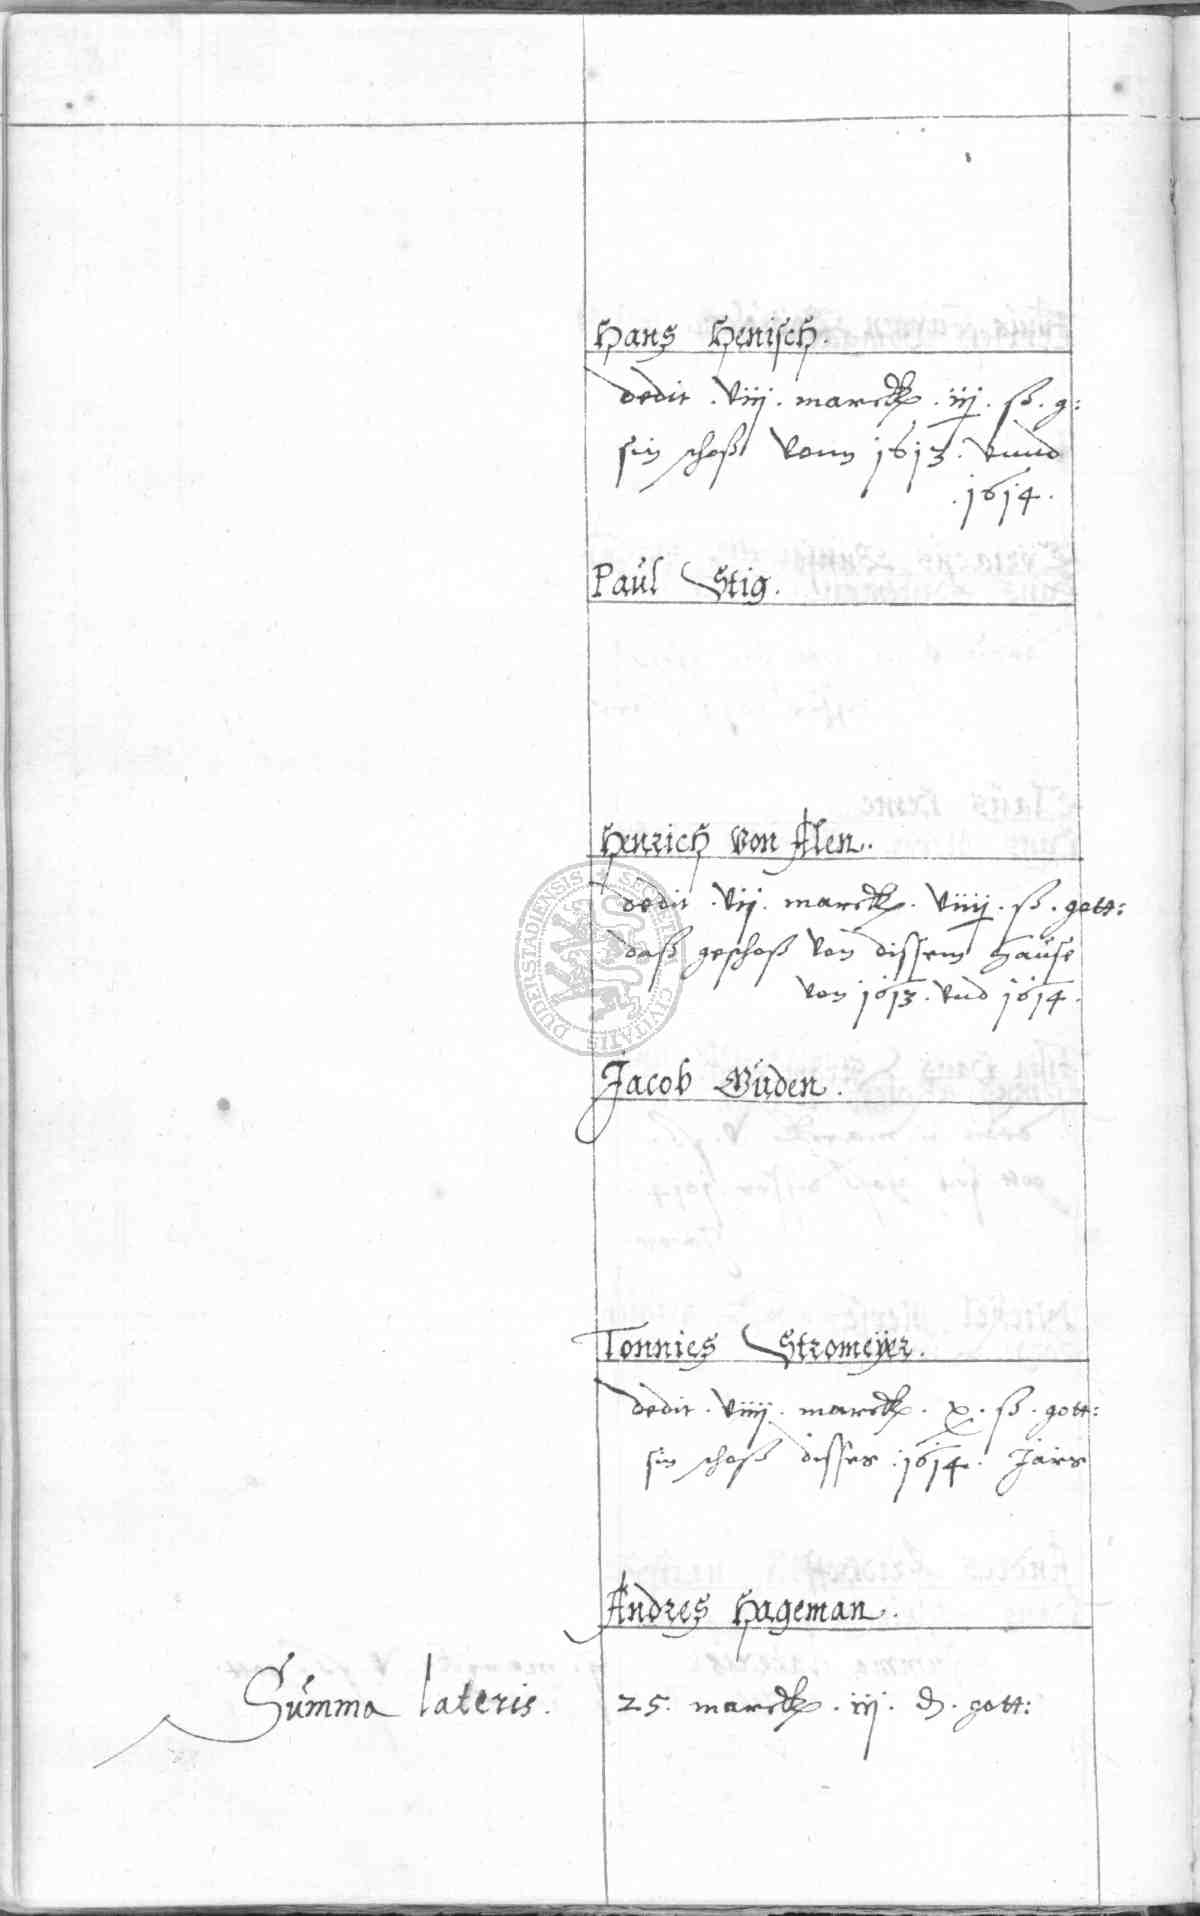 Hans Henisch.
dedit . viij . marck . iij . ß . g:
sin schoß vonn 1613 . vnnd
. 1614 .
Paul Stig.
Henrich von Alen.
dedit . vij . marck . viiij . ß . gott:
daß geschoß von dissem hause
von 1613 . vnd 1614 .
Jacob Güden .
Tonnies Stromeÿer .
dedit . viiij . marck . x . ß . gott:
sin schoß disses . 1614 . Jars
Andres Hageman .
Summa lateris . 25 . marck . iij . d . gott:
SECRETUM CIVITATIS DUDERSTADIENSIS